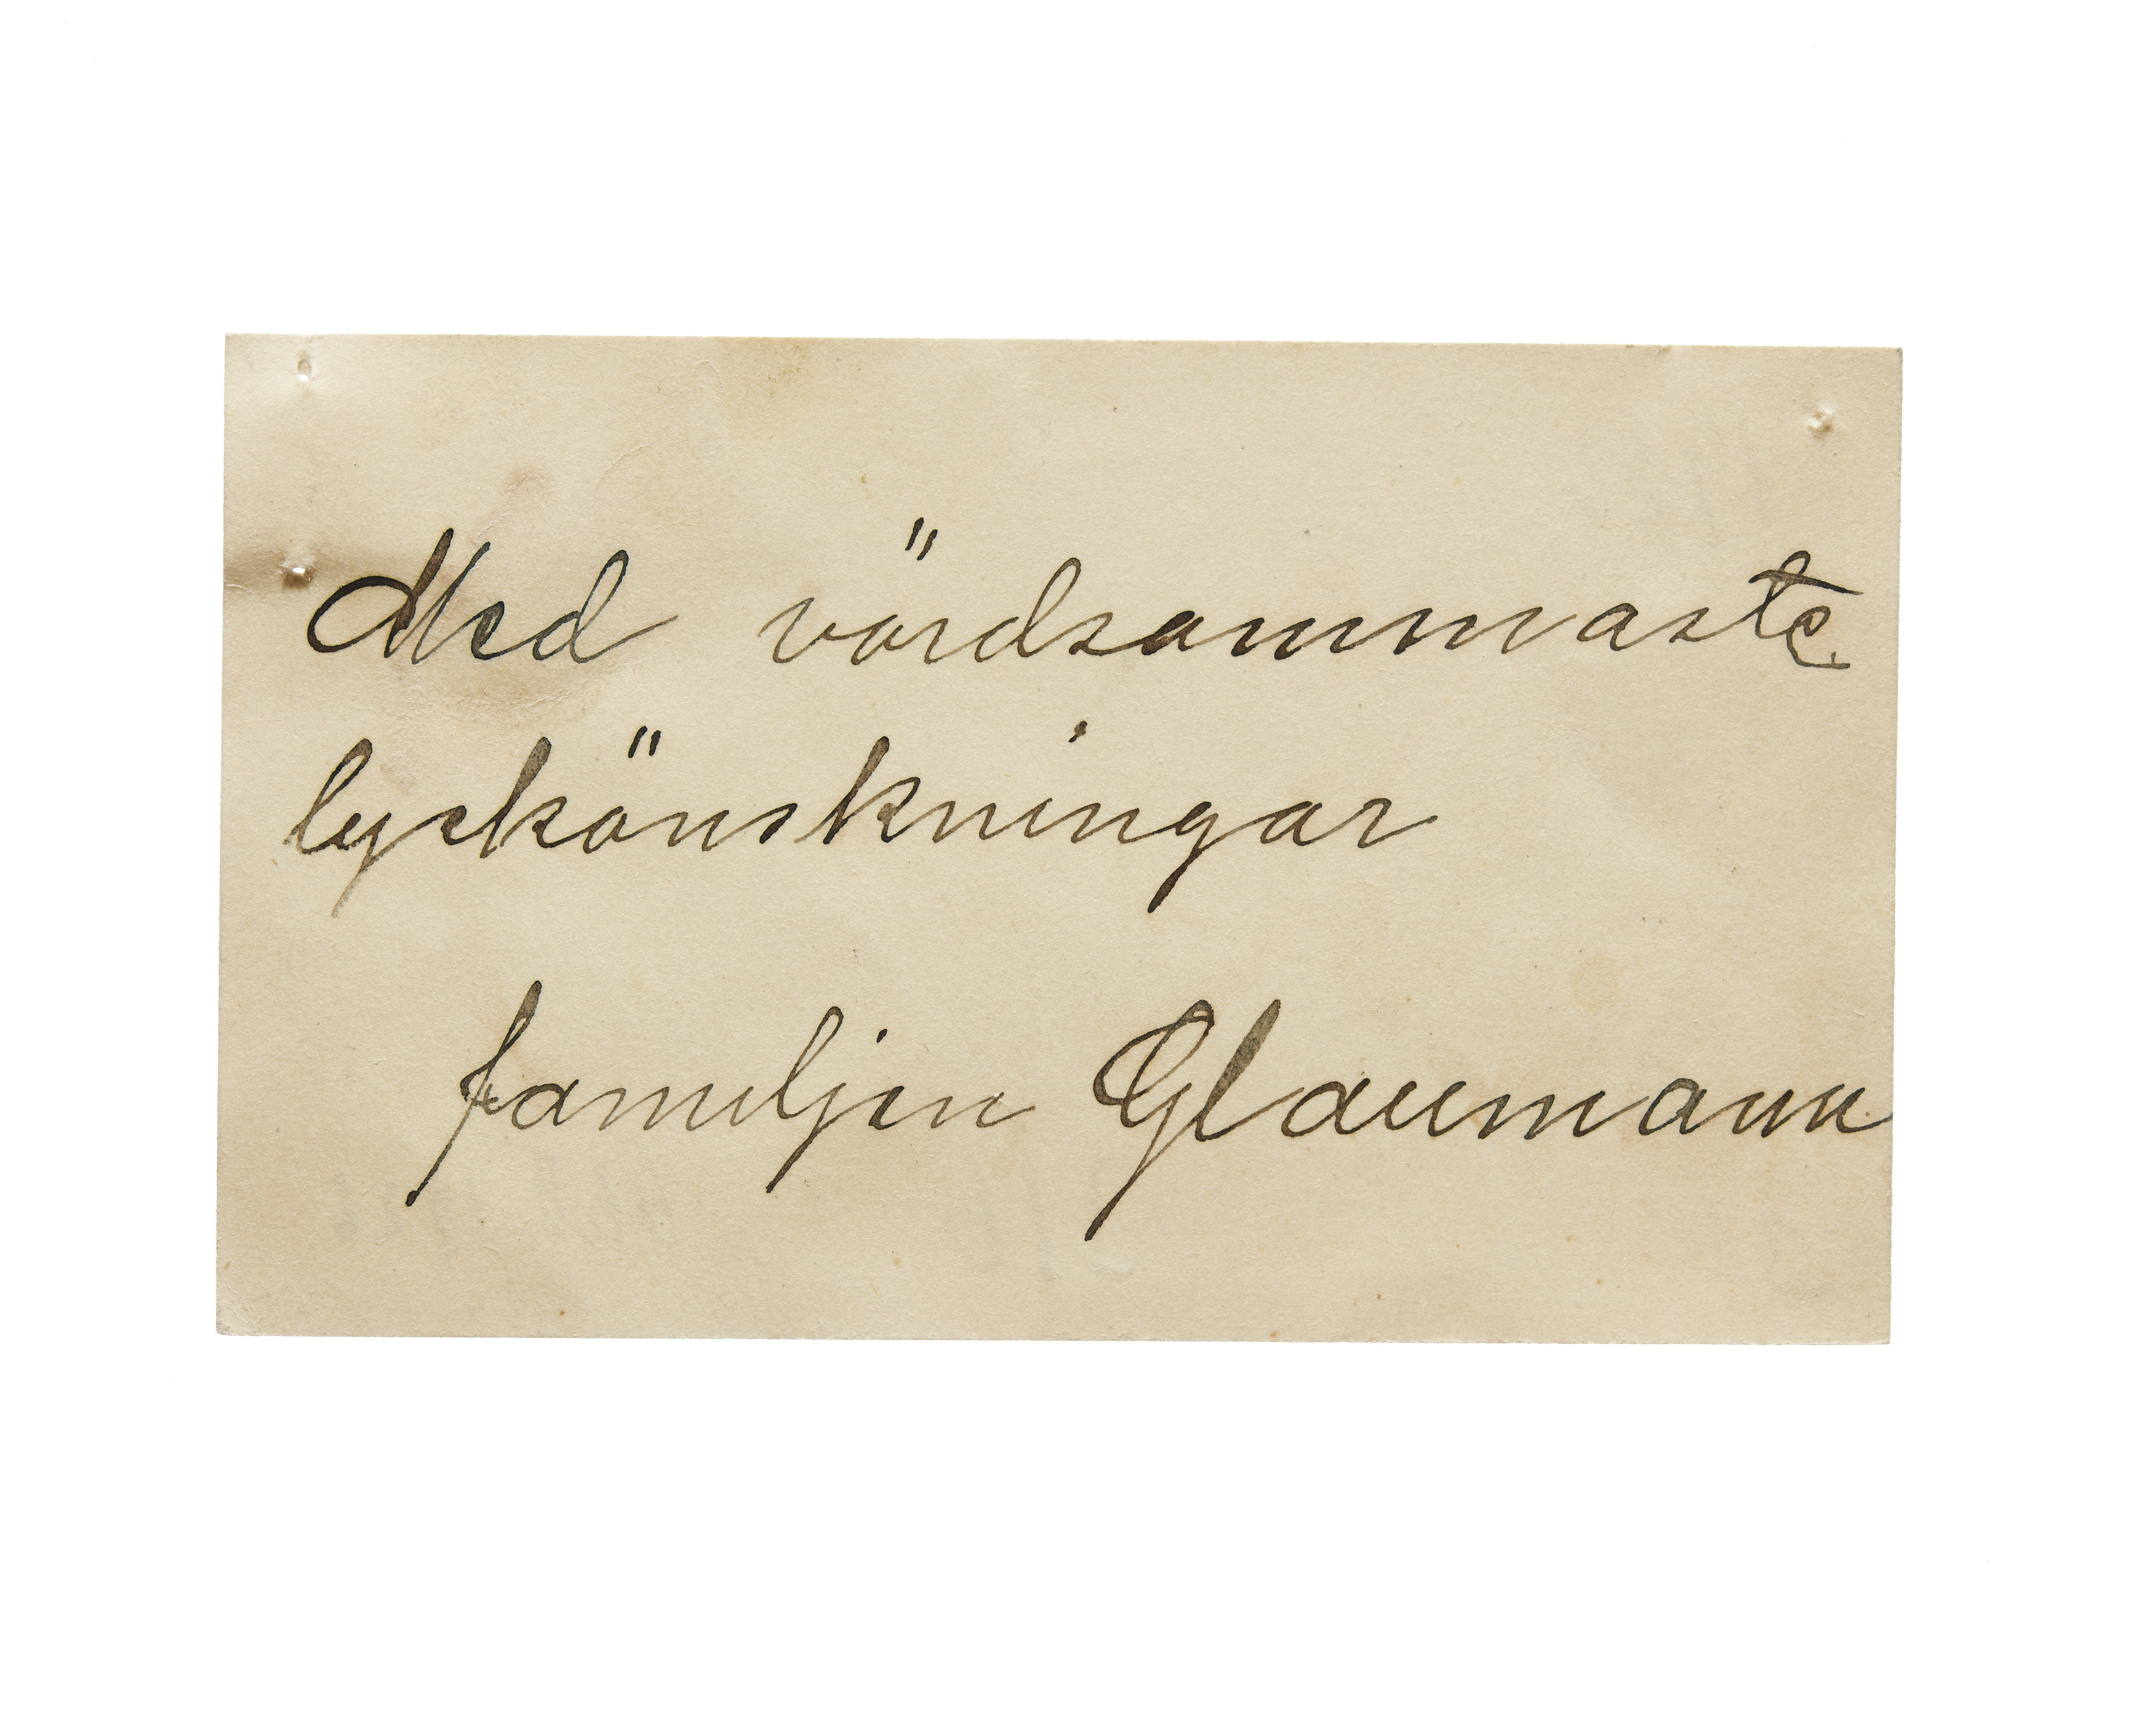 Med vördsammaste
lyckönskningar
familjen Glaumann